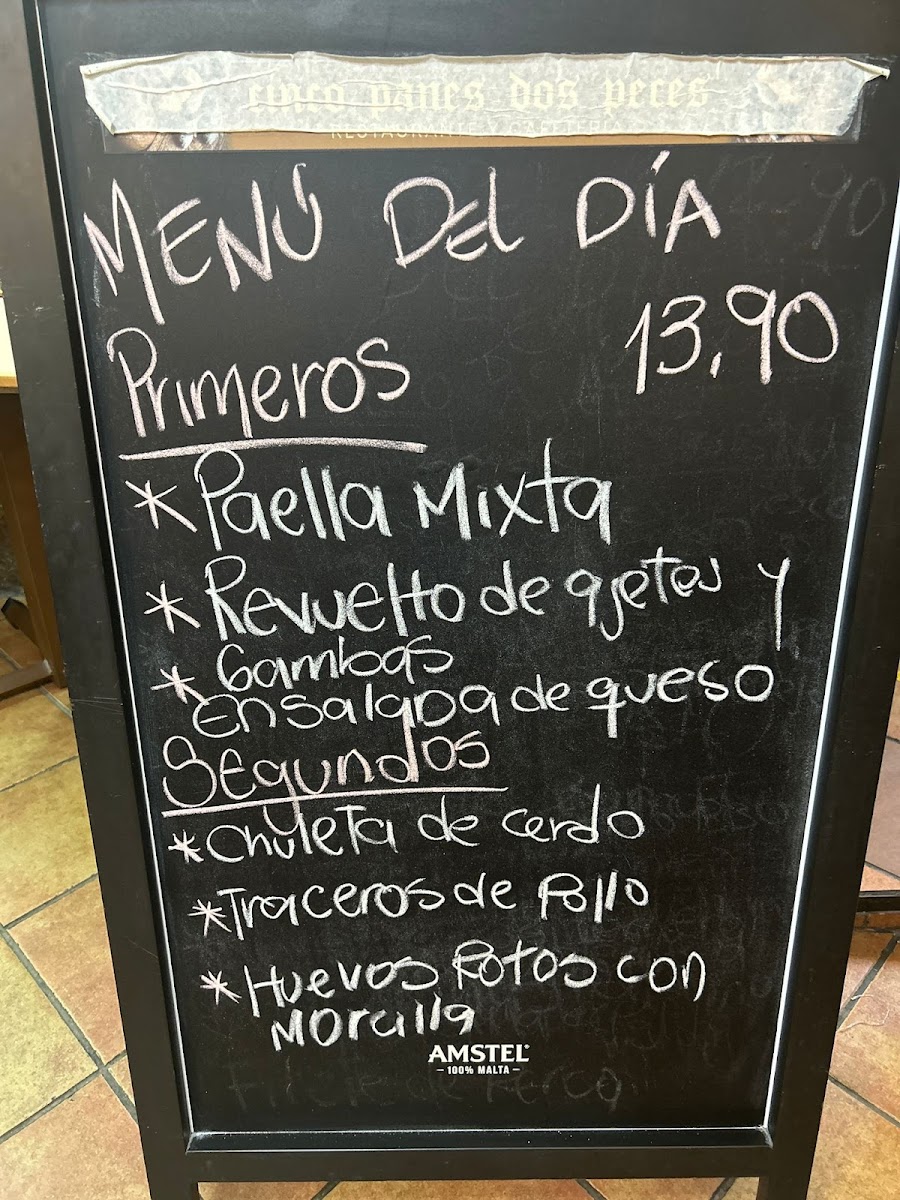 cinco panes dos peces
MENÚ DEL DÍA
13,90
Primeros
* Paella Mixta
* Revuelto de ajetes y
Gambas
* Ensalada de queso
Segundos
* Chuleta de cerdo
* Traceros de Pollo
* Huevos Rotos con
Moralla
AMSTEL
100% MALTA